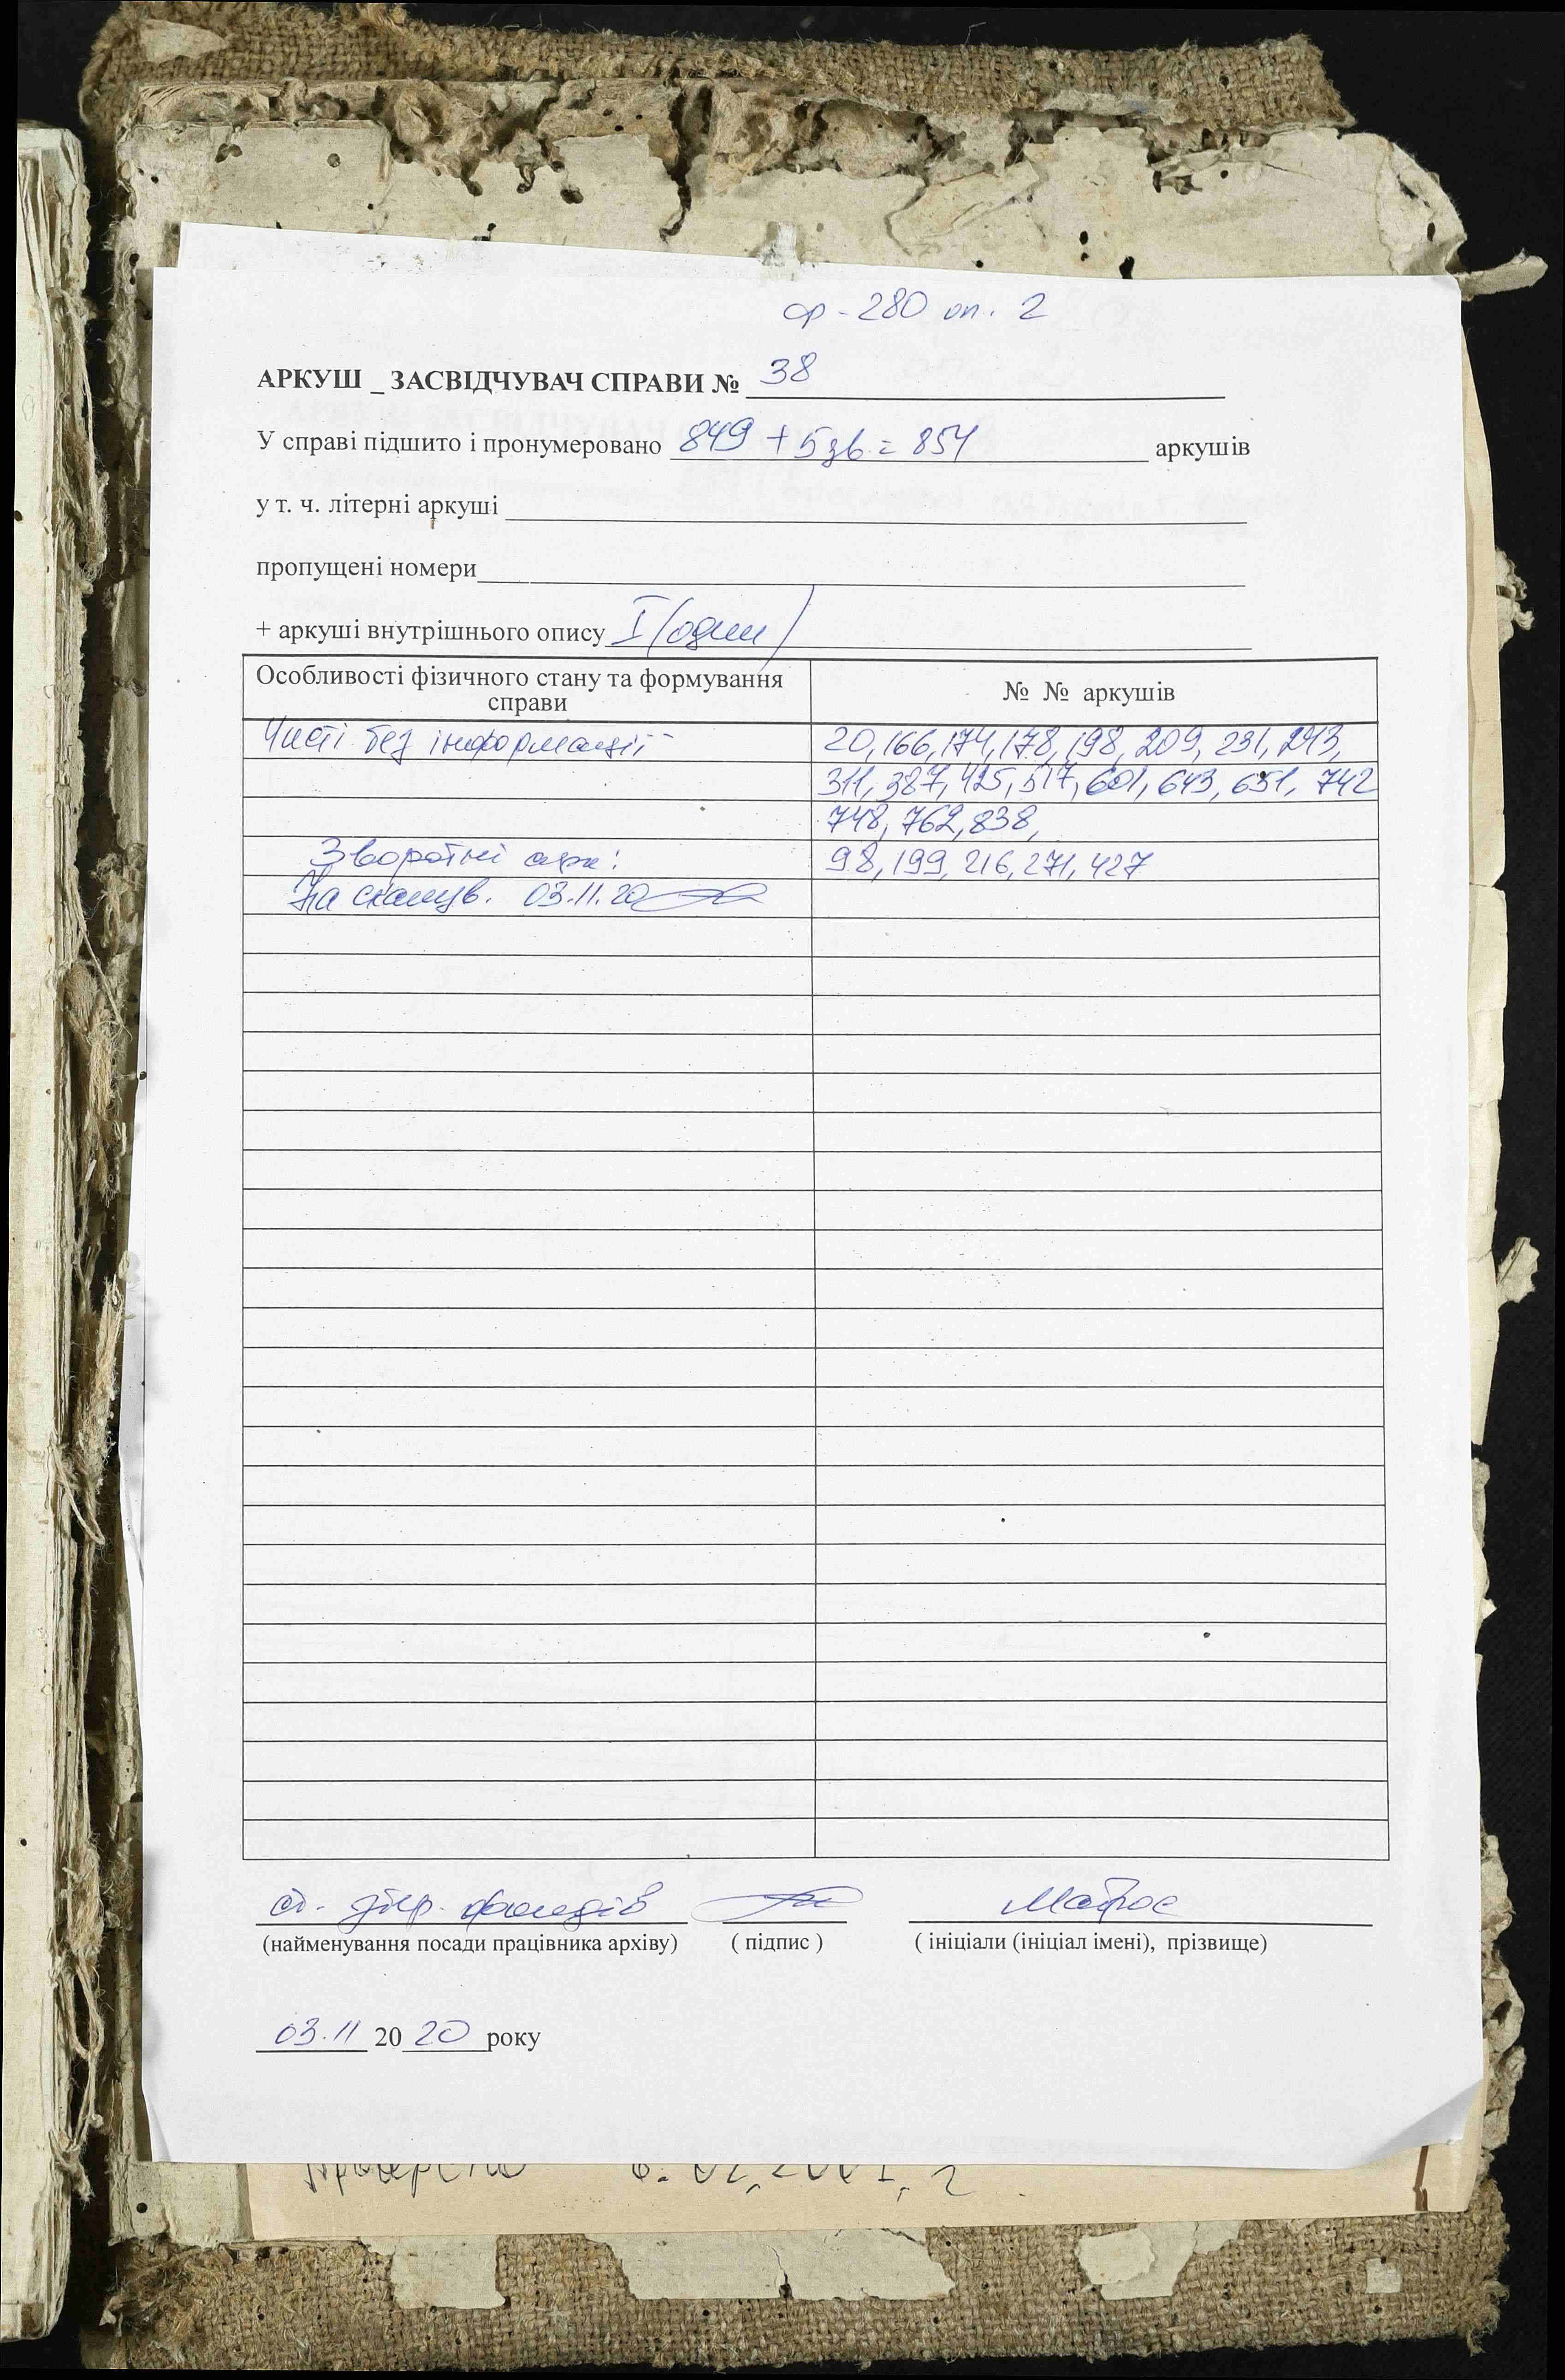 ф-280 оп. 2
АРКУШ _ ЗАСВІДЧУВАЧ СПРАВИ № 38
У справі підшито і пронумеровано 849 + 5 зв. = 854 аркушів
у т. ч. літерні аркуші
пропущені номери
+ аркуші внутрішнього опису I (один)
Особливості фізичного стану та формування справи
№ № аркушів
Чисті без інформації 20, 166, 174, 178, 198, 209, 231, 243,
311, 387, 425, 517, 601, 643, 651, 742
748, 762, 838,
Зворотні арк: 98, 199, 216, 271, 427
На сканув. 03.11.20
ст. збер. фондів Матрос
(найменування посади працівника архіву) ( підпис ) ( ініціали (ініціал імені), прізвище)
03.11 2020 року